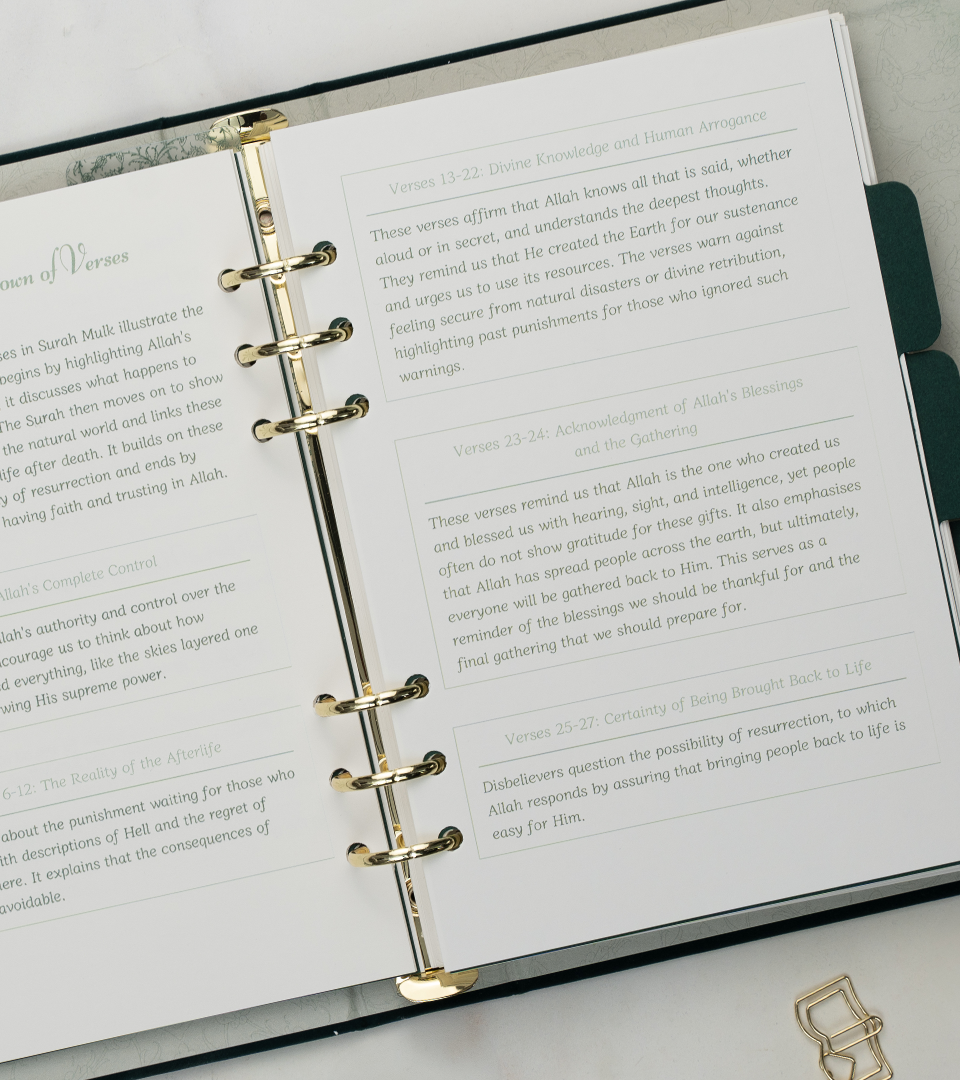 own of Verses
ses in Surah Mulk illustrate the
begins by highlighting Allah's
it discusses what happens to
The Surah then moves on to show
the natural world and links these
life after death. It builds on these
y of resurrection and ends by
having faith and trusting in Allah.
Allah's Complete Control
lah's authority and control over the
courage us to think about how
d everything, like the skies layered one
wing His supreme power.
6-12: The Reality of the Afterlife
about the punishment waiting for those who
ith descriptions of Hell and the regret of
here. It explains that the consequences of
avoidable.
Verses 13-22: Divine Knowledge and Human Arrogance
These verses affirm that Allah knows all that is said, whether
aloud or in secret, and understands the deepest thoughts.
They remind us that He created the Earth for our sustenance
and urges us to use its resources. The verses warn against
feeling secure from natural disasters or divine retribution,
highlighting past punishments for those who ignored such
warnings.
Verses 23-24: Acknowledgment of Allah's Blessings
and the Gathering
These verses remind us that Allah is the one who created us
and blessed us with hearing, sight, and intelligence, yet people
often do not show gratitude for these gifts. It also emphasises
that Allah has spread people across the earth, but ultimately,
everyone will be gathered back to Him. This serves as a
reminder of the blessings we should be thankful for and the
final gathering that we should prepare for.
Verses 25-27: Certainty of Being Brought Back to Life
Disbelievers question the possibility of resurrection, to which
Allah responds by assuring that bringing people back to life is
easy for Him.